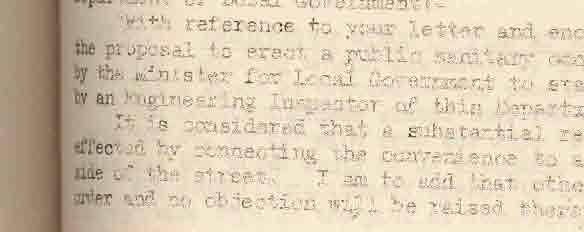 of Local Government:-
With reference to your letter and enc
the proposal to erect a public sanitary con
by the Minister for Local Government to
by an Engineering Inspector of this Departm
It is considered that a substantial re
effected by connecting the convenience to a
side of the street. I am to add that othe
order and no objection will be raised there